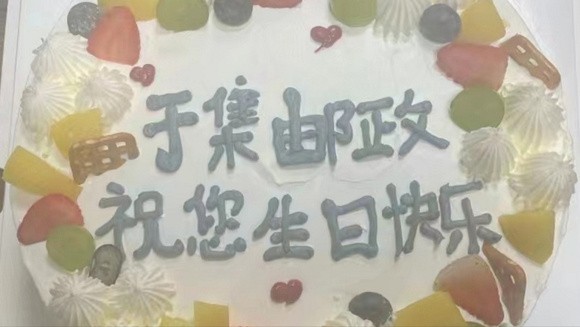 于集邮政
祝您生日快乐